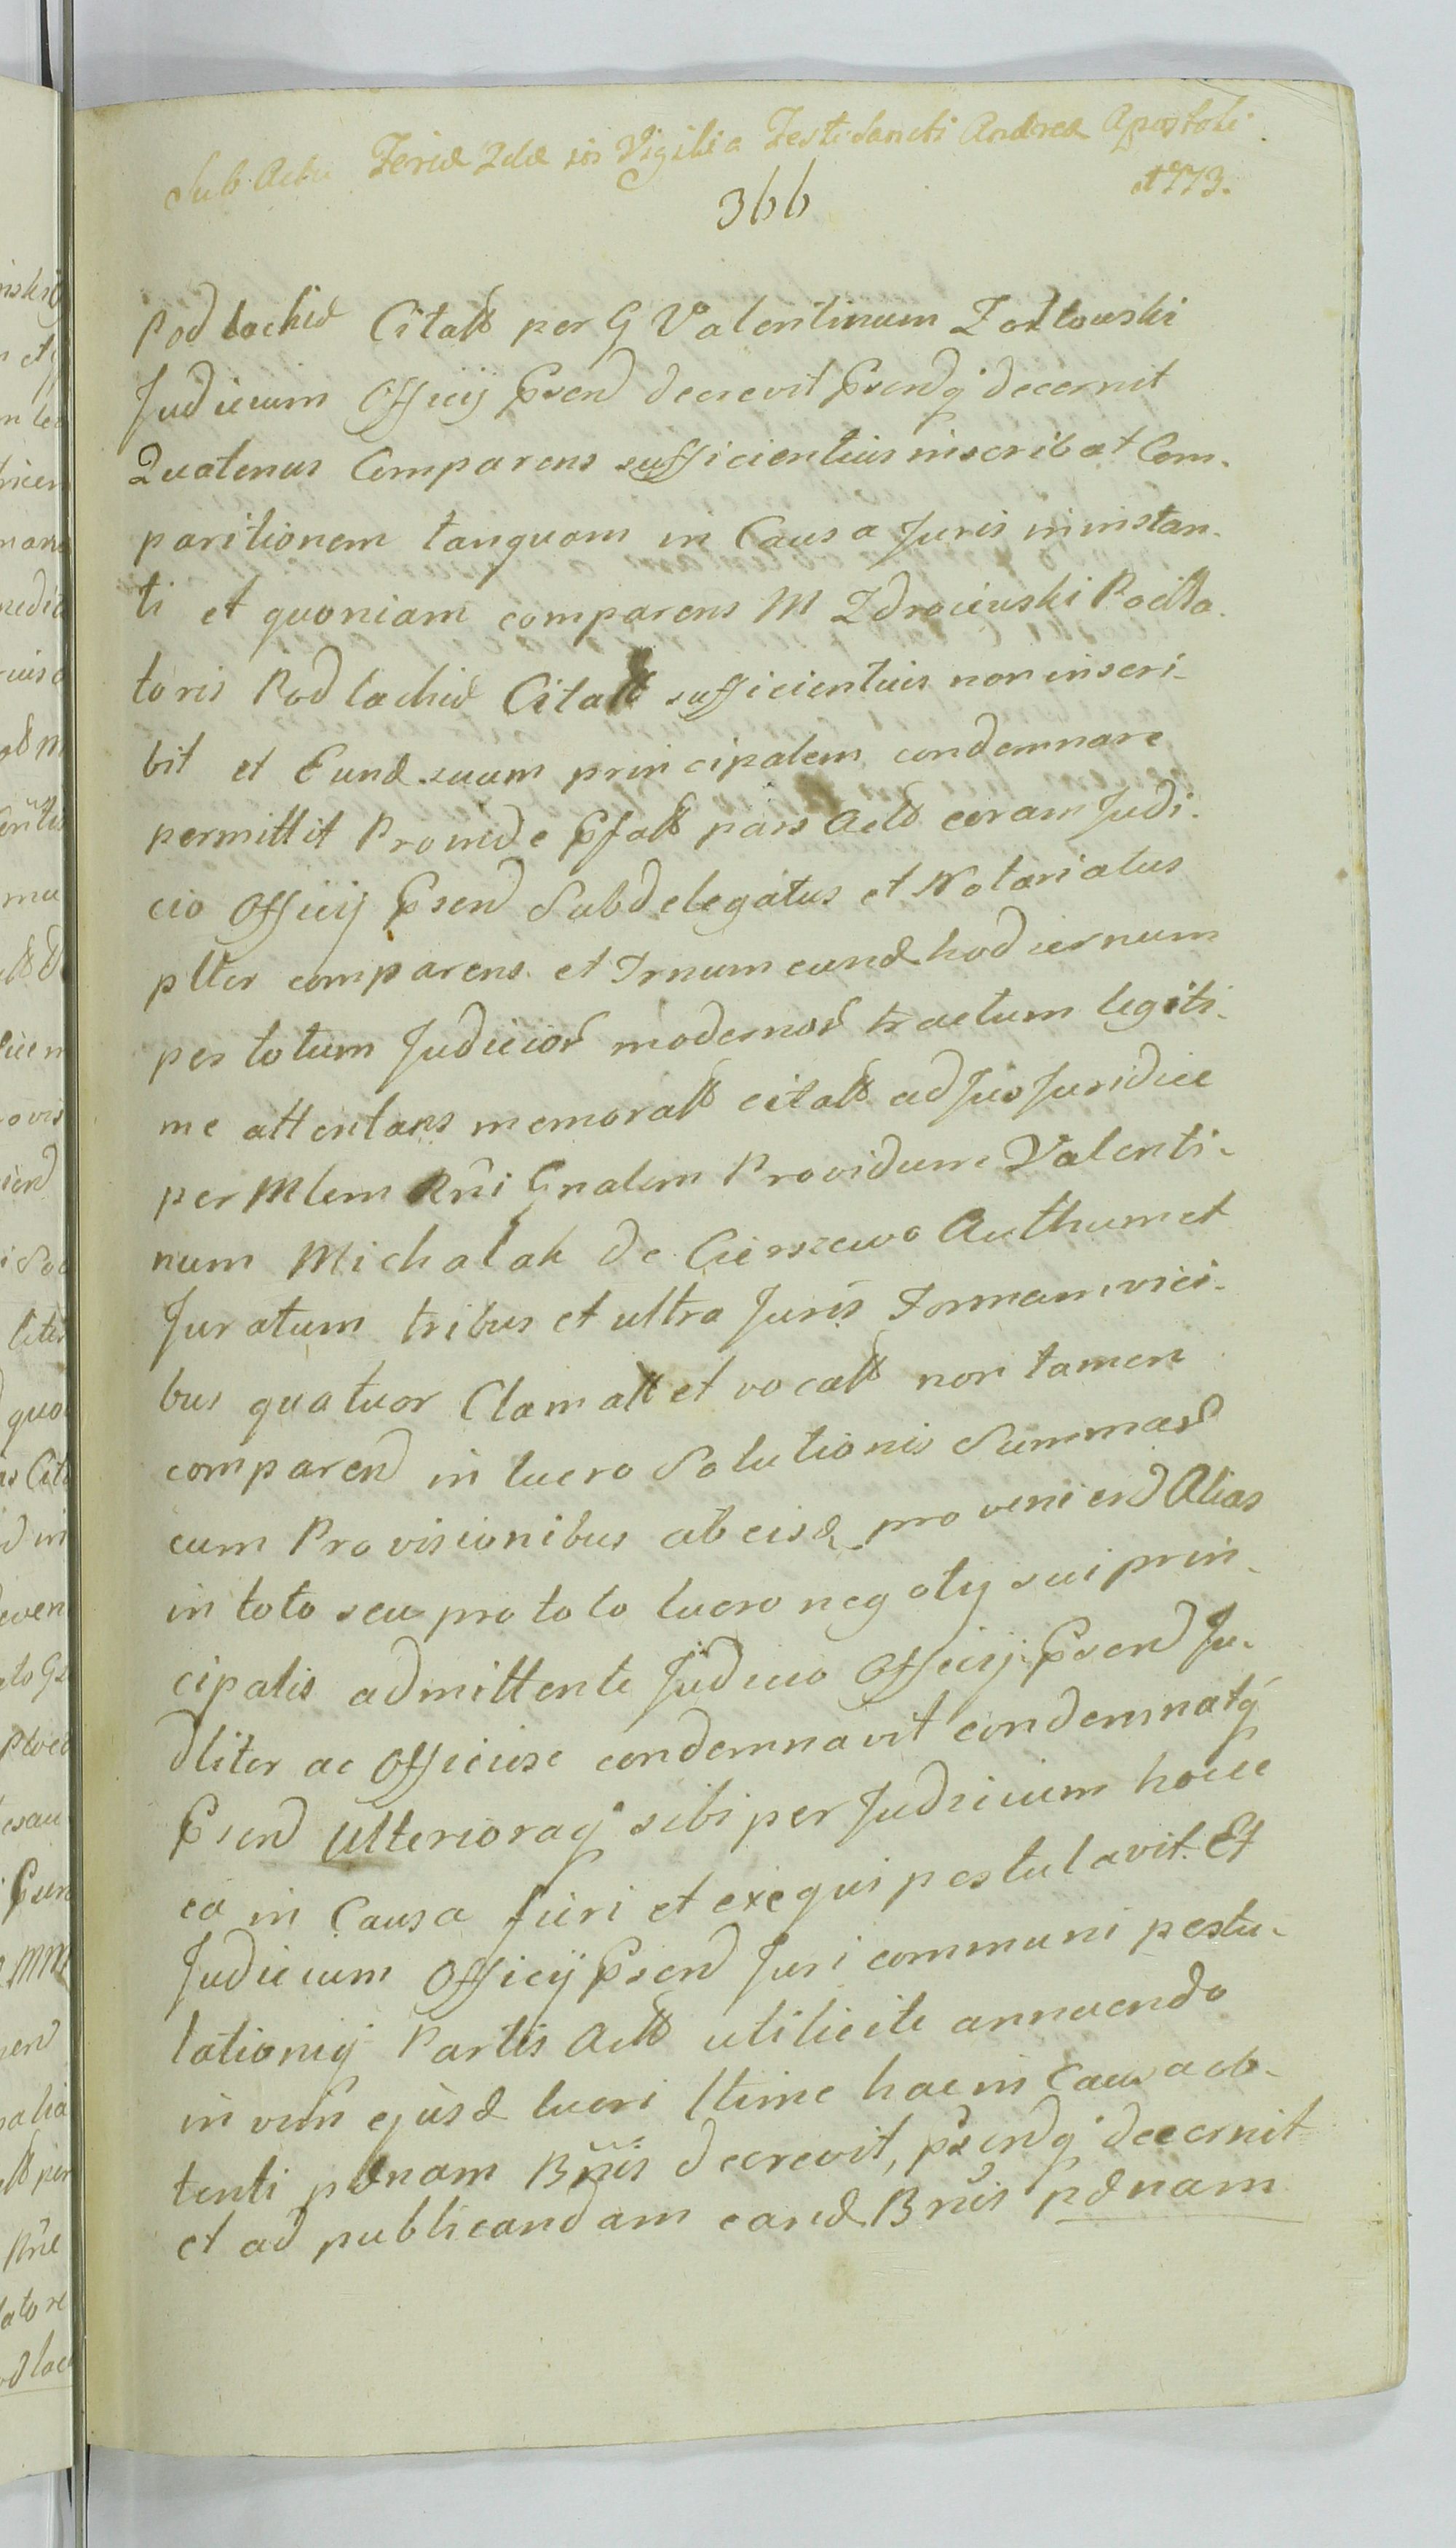 Sub Actu Feriæ 2dæ in Vigilia Festi Sancti Andreæ Apostoli
1773.
366
Podlachiæ Citatt per G Valentinum Zoltowski
Judicium Officij Psend decrevit Psendq decernit
Quatenus Comparens sufficientius inscribat Com-
paritionem tanquam in Causa Juris in instan-
ti et quoniam comparens M Zdrociewski Pocilla-
toris Podlachiæ Citatt sufficientius non inscri-
bit et Eund suum principalem condemnare
permittit Proinde Pfatt pars Act coram Judi-
cio Officij Psend Subdelegatus et Notariatus
plter comparens et Trnum eund hodiernum
per totum Judicior modernor tractum legiti-
me attentans memoratt citatt ad Jus Juridice
per Mlem Rni Gnalem Providum Valenti-
num Michalak de Cierszewo Authum et
Juratum tribus et ultra Juris Formam vici-
bus quatuor Clamatt et vocatt non tamen
comparend in lucro Solutionis Summar
cum Provisionibus ab eisd proveniend Alias
in toto seu pro toto lucro negotij sui prin-
cipalis admittente Judicio Officij Psend Ju-
dliter ac Officiose condemnavit condemnatq
Psend Ulterioraq sibi per Judicium hocce
ea in Causa fieri et exequi postulavit. Et
Judicium Officij Psend Juri communi postu-
lationiq Partis Act uti licite annuendo
in vim ejusd lucri ltime hac in Causa ob-
tenti pænam Bnis decrevit, psendq decernit
et ad publicandam eand Bnis pænam